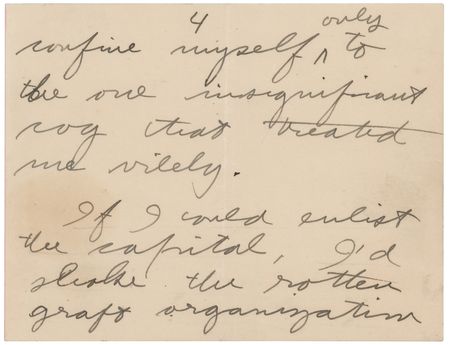 4
only
confine myself ^ to
the one insignificant
cog that treated
me vilely.
If I could enlist
the capital, I'd
shake the rotten
graft organization